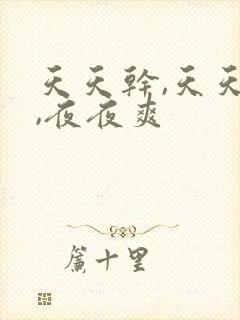 天天幹,天天
,夜夜爽
簾十里